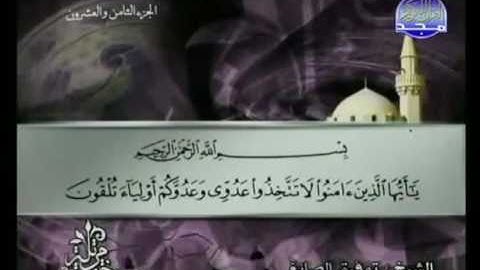 الجزء الثامن والعشرون
المجد
بِسْمِ ٱللَّهِ ٱلرَّحْمَٰنِ ٱلرَّحِيمِ
يَٰٓأَيُّهَا ٱلَّذِينَ ءَامَنُوا۟ لَا تَتَّخِذُوا۟ عَدُوِّى وَعَدُوَّكُمْ أَوْلِيَآءَ تُلْقُونَ
الشيخ توفيق الصايغ